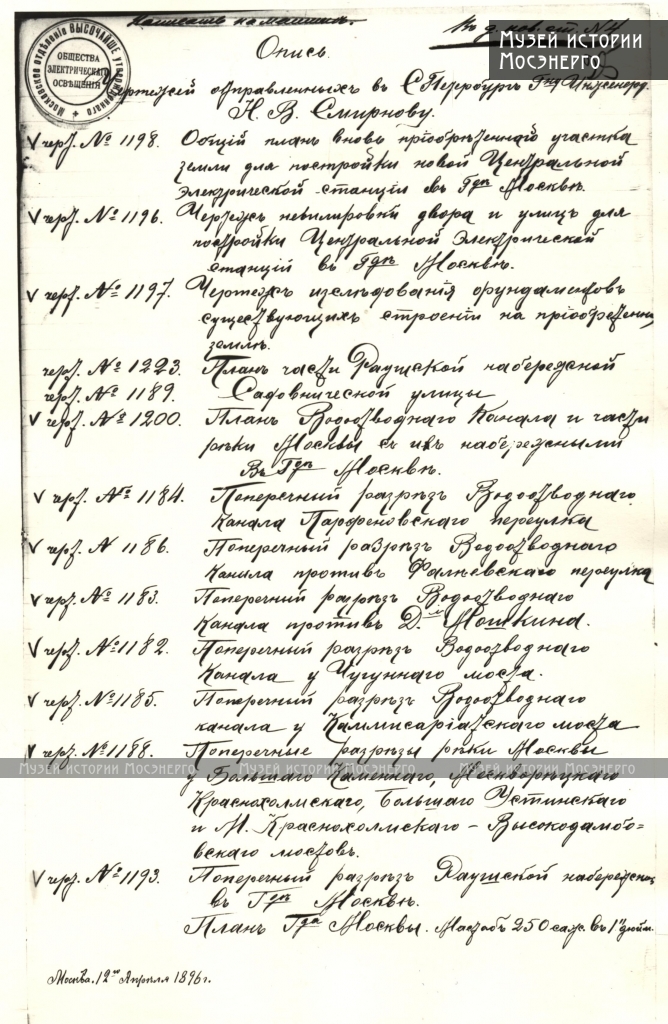 Написать на машинѣ.
МУЗЕЙ ИСТОРИИ
МОСЭНЕРГО
МОСКОВСКОЕ ОТДѢЛЕНІЕ ВЫСОЧАЙШЕ УТВЕРЖДЕННАГО
ОБЩЕСТВА
ЭЛЕКТРИЧЕСКАГО
ОСВѢЩЕНІЯ
Опись
Чертежей отправленныхъ въ С Петербургъ Гну Инженеру
Н. В. Смирнову.
V черт. № 1198. Общій планъ вновь пріобрѣтеннаго участка
земли для постройки новой Центральной
Электрической станціи въ Гдѣ Москвѣ.
V черт. № 1196. Чертежъ невилировки двора и улицъ для
постройки Центральной Электрической
станціи въ Гдѣ Москвѣ.
V черт. № 1197. Чертежъ изслѣдованія фундаментовъ
существующихъ строеній на пріобрѣтенн.
землѣ.
черт. № 1223. Планъ части Раушской набережной
черт. № 1189. Садовнической улицы
V черт. № 1200. Планъ Водоотводнаго Канала и части
рѣки Москвы съ ихъ набережными
Въ Гдѣ Москвѣ.
V черт. № 1184. Поперечный разрѣзъ Водоотводнаго
Канала Парфеновскаго переулка
V черт. № 1186. Поперечный разрѣзъ Водоотводнаго
Канала противъ Фалѣевскаго переулка
V черт. № 1183. Поперечный разрѣзъ Водоотводнаго
Канала противъ Д. Мошкина.
V черт. № 1182. Поперечный разрѣзъ Водоотводнаго
Канала у Чугуннаго моста.
V черт. № 1185. Поперечный разрѣзъ Водоотводнаго
канала у Каммисаріатскаго моста
V черт. № 1188. Поперечные разрѣзы рѣки Москвы
МУЗЕЙ ИСТОРИИ МОСЭНЕРГО МУЗЕЙ ИСТОРИИ МОСЭНЕРГО МУЗЕЙ ИСТОРИИ МОСЭНЕРГО
у Большаго Каменнаго, Москворѣцкаго
Краснохолмскаго, Большаго Устинскаго
и М. Краснохолмскаго - Высокодамбо=
вскаго мостовъ.
V черт. № 1193. Поперечный разрѣзъ Раушской набережно
въ Гдѣ Москвѣ.
Планъ Гда Москвы. Масштабъ 250 саж. въ 1" дюйм.
Москва. 12го Апрѣля 1896 г.